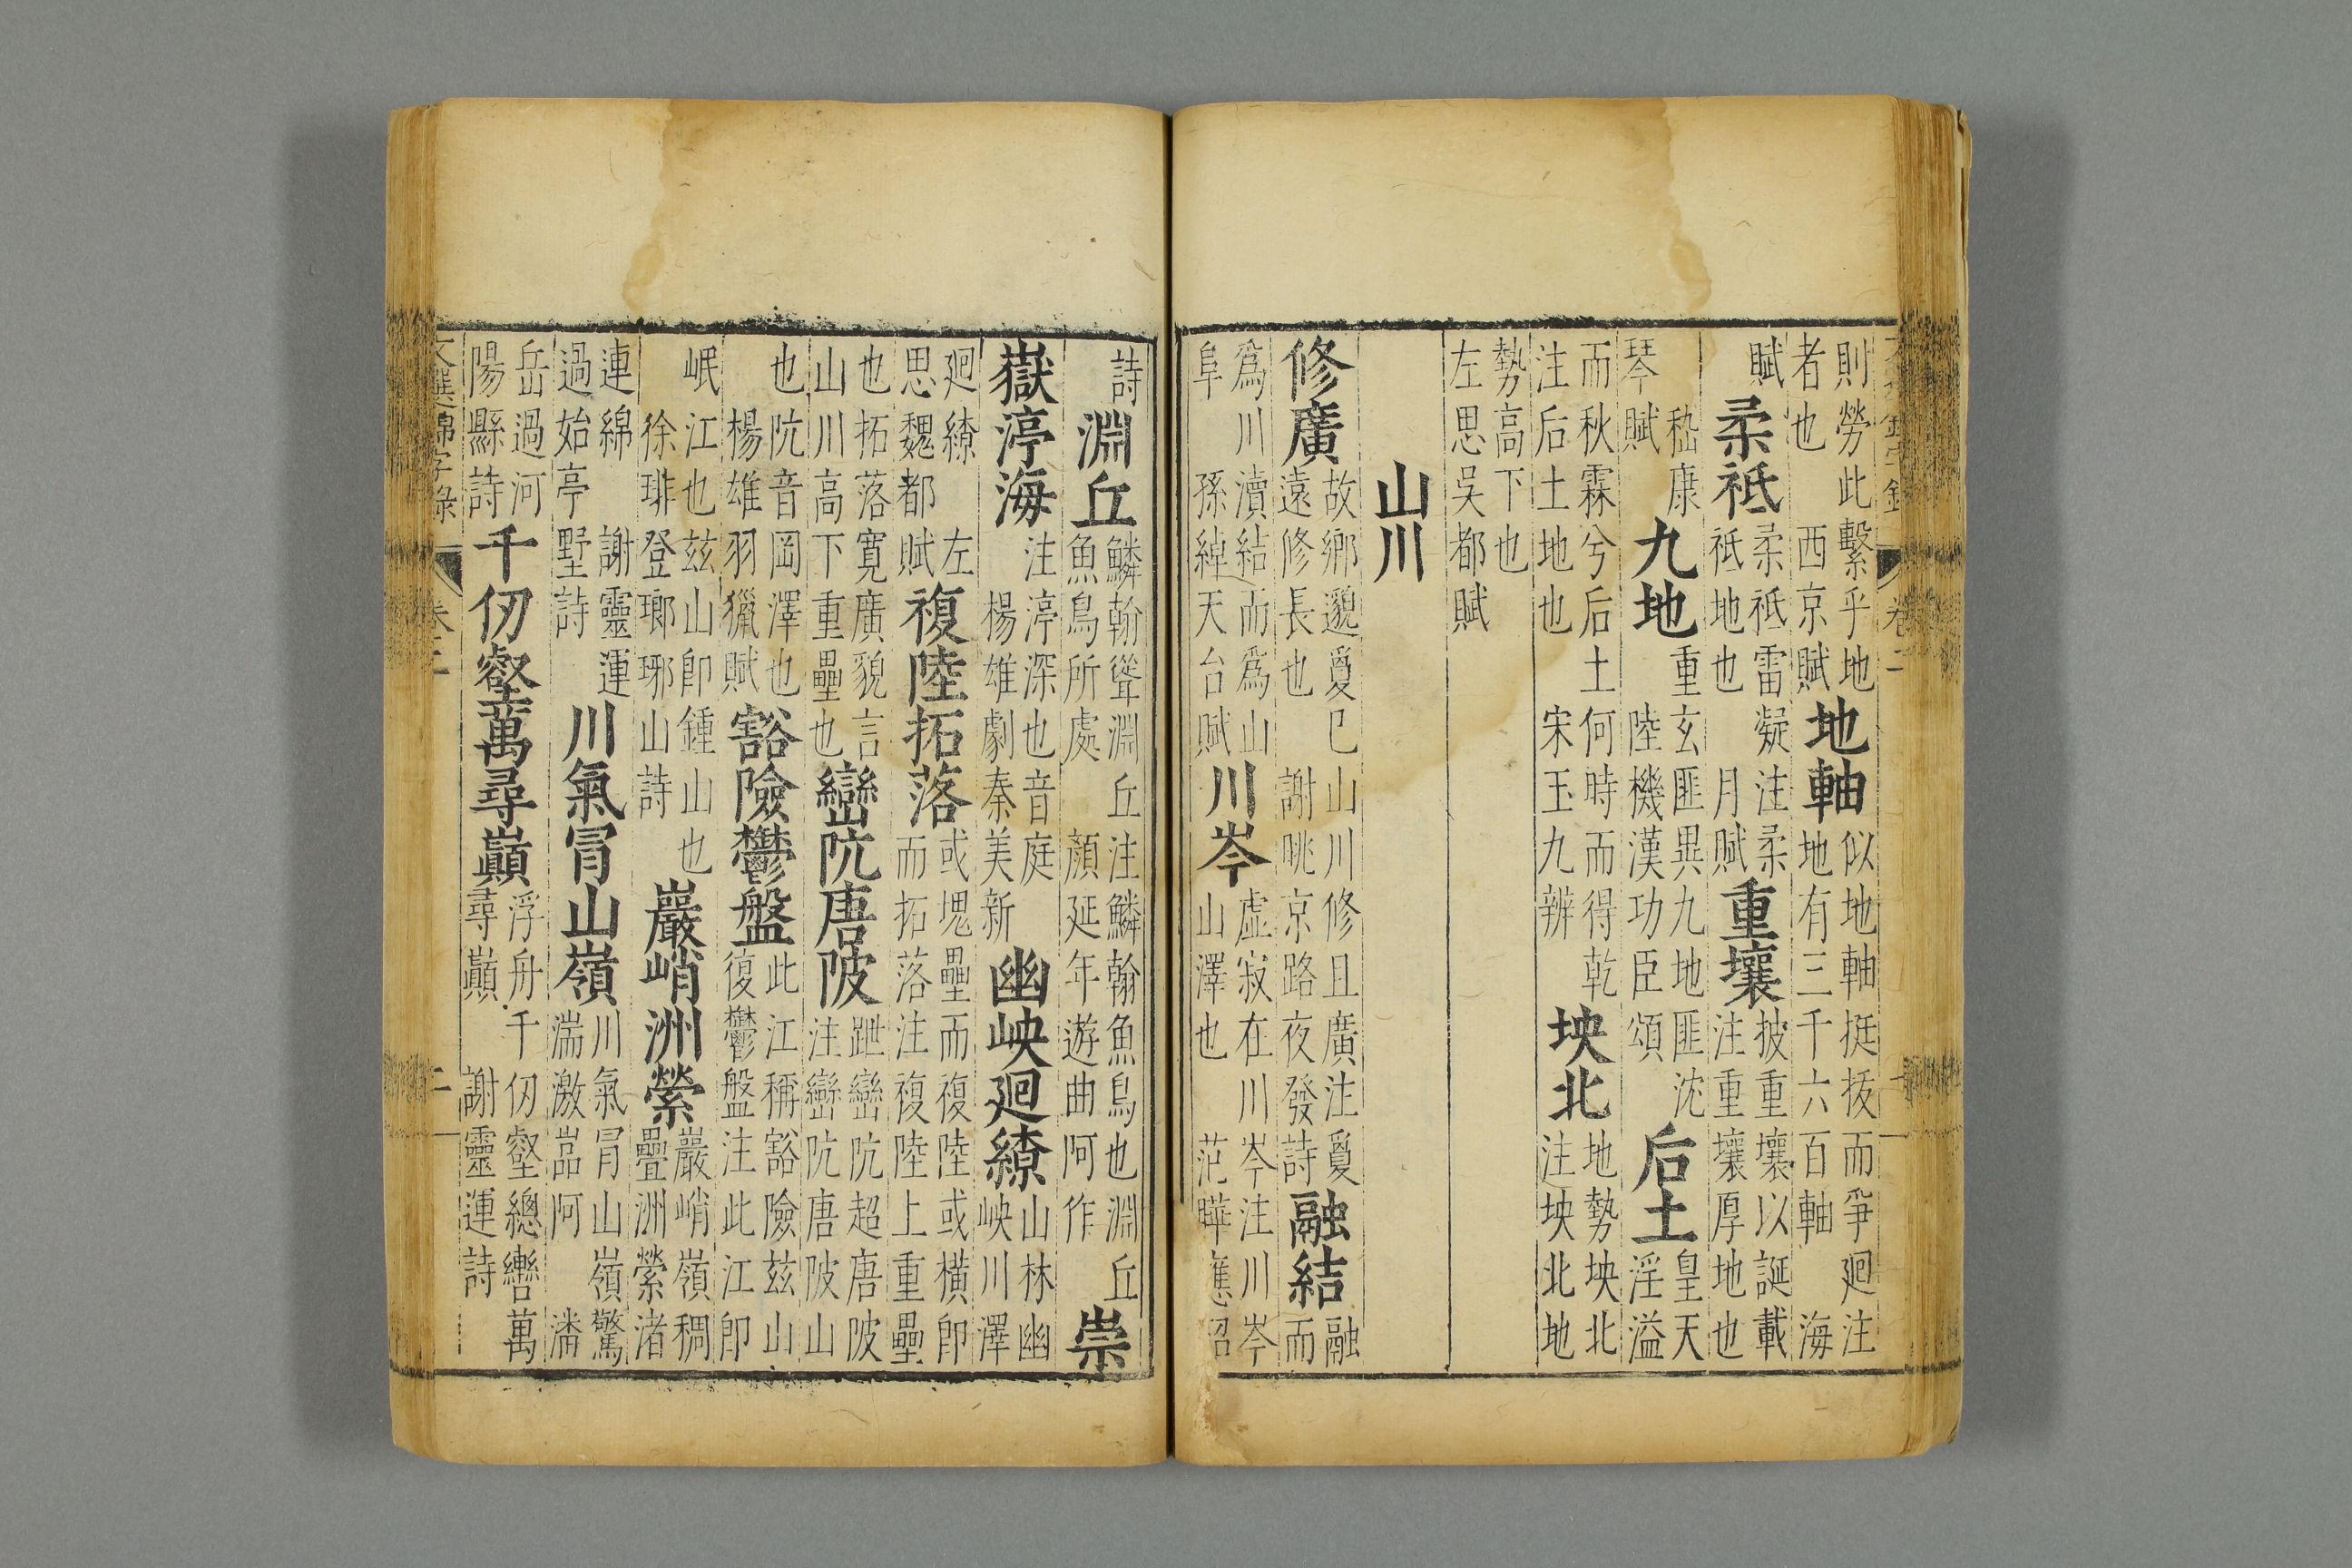 則勞此繫乎地者也 西京賦 地軸 似地軸挺拔而爭廻注地有三千六百軸 海
賦 柔祇 柔祇雷凝注柔祇地也 月賦 重壤 披重壤以誕載注重壤厚地也
嵇康琴賦 九地 重玄匪奧九地匪沈 陸機漢功臣頌 后土 皇天淫溢
而秋霖兮后土何時而得乾注后土地也 宋玉九辨 坱北 地勢坱北注坱北地
勢高下也 左思吳都賦
山川
修廣 故鄉邈夐已山川修且廣注夐遠修長也 謝眺京路夜發詩 融結 融而
爲川瀆結而爲山阜 孫綽天台賦 川岑 虛寂在川岑注川岑山澤也 范曄應詔
詩 淵丘 鱗翰聳淵丘注鱗翰魚鳥也淵丘魚鳥所處 顏延年遊曲阿作 崇
嶽渟海 注渟深也音庭 楊雄劇秦美新 幽岟廻繚 山林幽岟川澤
廻繚 左思魏都賦 複陸拓落 或堁壘而複陸或橫即而拓落注複陸上重壘
也拓落寬廣貌言山川高下重壘也 巒阬唐陂 跇巒阬超唐陂注巒阬唐陂山
也阬音岡澤也 楊雄羽獵賦 豁險鬱盤 此江稱豁險兹山復鬱盤注此江即
岷江也兹山即鍾山也 徐琲登瑯琊山詩 巖峭洲縈 巖峭嶺稠疊洲縈渚
連綿 謝靈運過始亭墅詩 川氣冒山嶺 川氣冒山嶺驚湍激嵓阿 潘
岳過河陽縣詩 千仞壑萬尋巔 浮舟千仞壑總轡萬尋巔 謝靈運詩
文選錦字錄 卷二